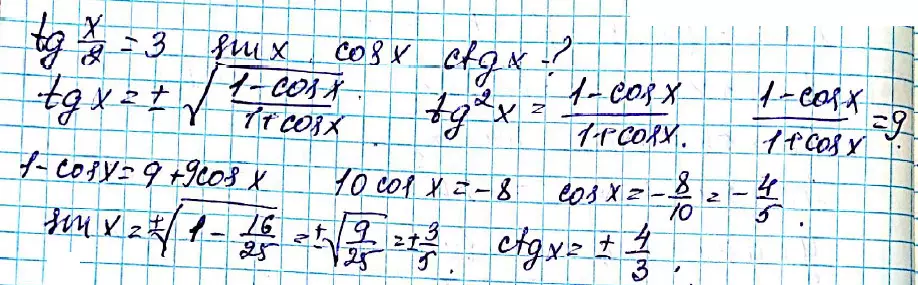 tg x/2 = 3 sin x cos x ctg x - ?
tg x = ± √((1-cos x)/(1+cos x)). tg²x = (1-cos x)/(1+cos x). (1-cos x)/(1+cos x) = 9.
1-cos x = 9+9cos x 10 cos x = -8 cos x = -8/10 = -4/5.
sin x = ±√(1 - 16/25) = ±√(9/25) = ±3/5. ctg x = ± 4/3.